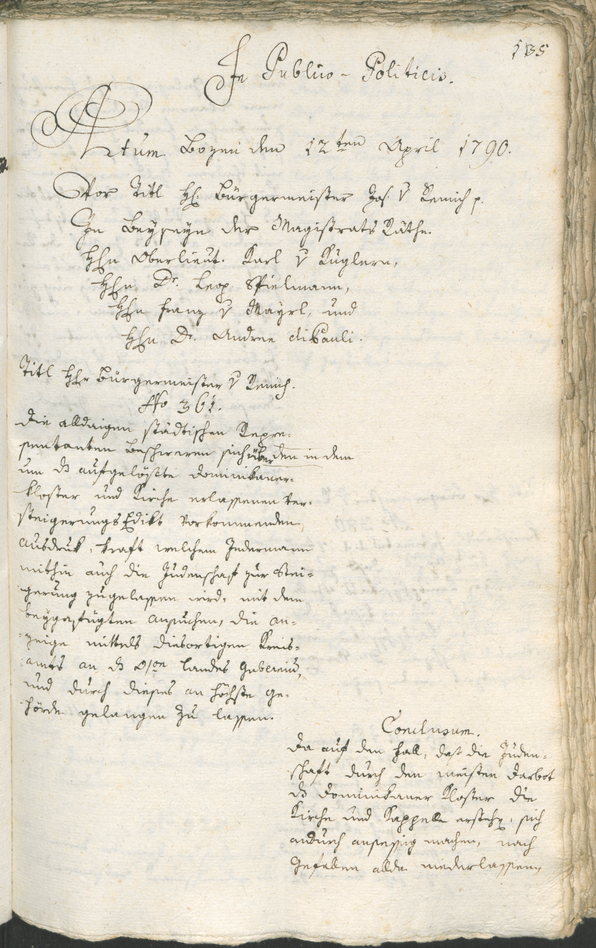 135
In Publico-Politicis.
Actum Bozen den 12ten April 1790.
Vor Titl Hh. Bürgermeister Jos. v Remich p.
In Beyseyn der Magistrats Räthe.
Hhn Oberlieut. Karl v Küglern,
Hhn Dr. Leop Spielmann,
Hhn Franz v Mayrl, und
Hhn Dr. Andree diPauli.
Titl Hhr Bürgermeister v Remich.
No 361.
die alldaigen städtischen Reprę-
sentanten beschweren sich über den in dem
um ds aufgelößte Dominikaner-
kloster und Kirche erlassenen Ver-
steigerungs Edikt vorkommenden
ausdruk, kraft welchem Jedermann
mithin auch die Judenschaft zur Stei-
gerung zugelassen wird, mit dem
beygefügten ansuchen, die an-
zeige mittels diesortigen Kreis-
amts an ds Landes Gubernium,
und durch dieses an höchste Be-
hörde gelangen zu lassen.
Conclusum.
Da auf den Fall, daß die Juden-
schaft durch den meisten Darbot
ds Dominikaner Kloster die
Kirche und Kappelle sich
andurch ansessig machen, nach
Gefallen alda niederlassen,